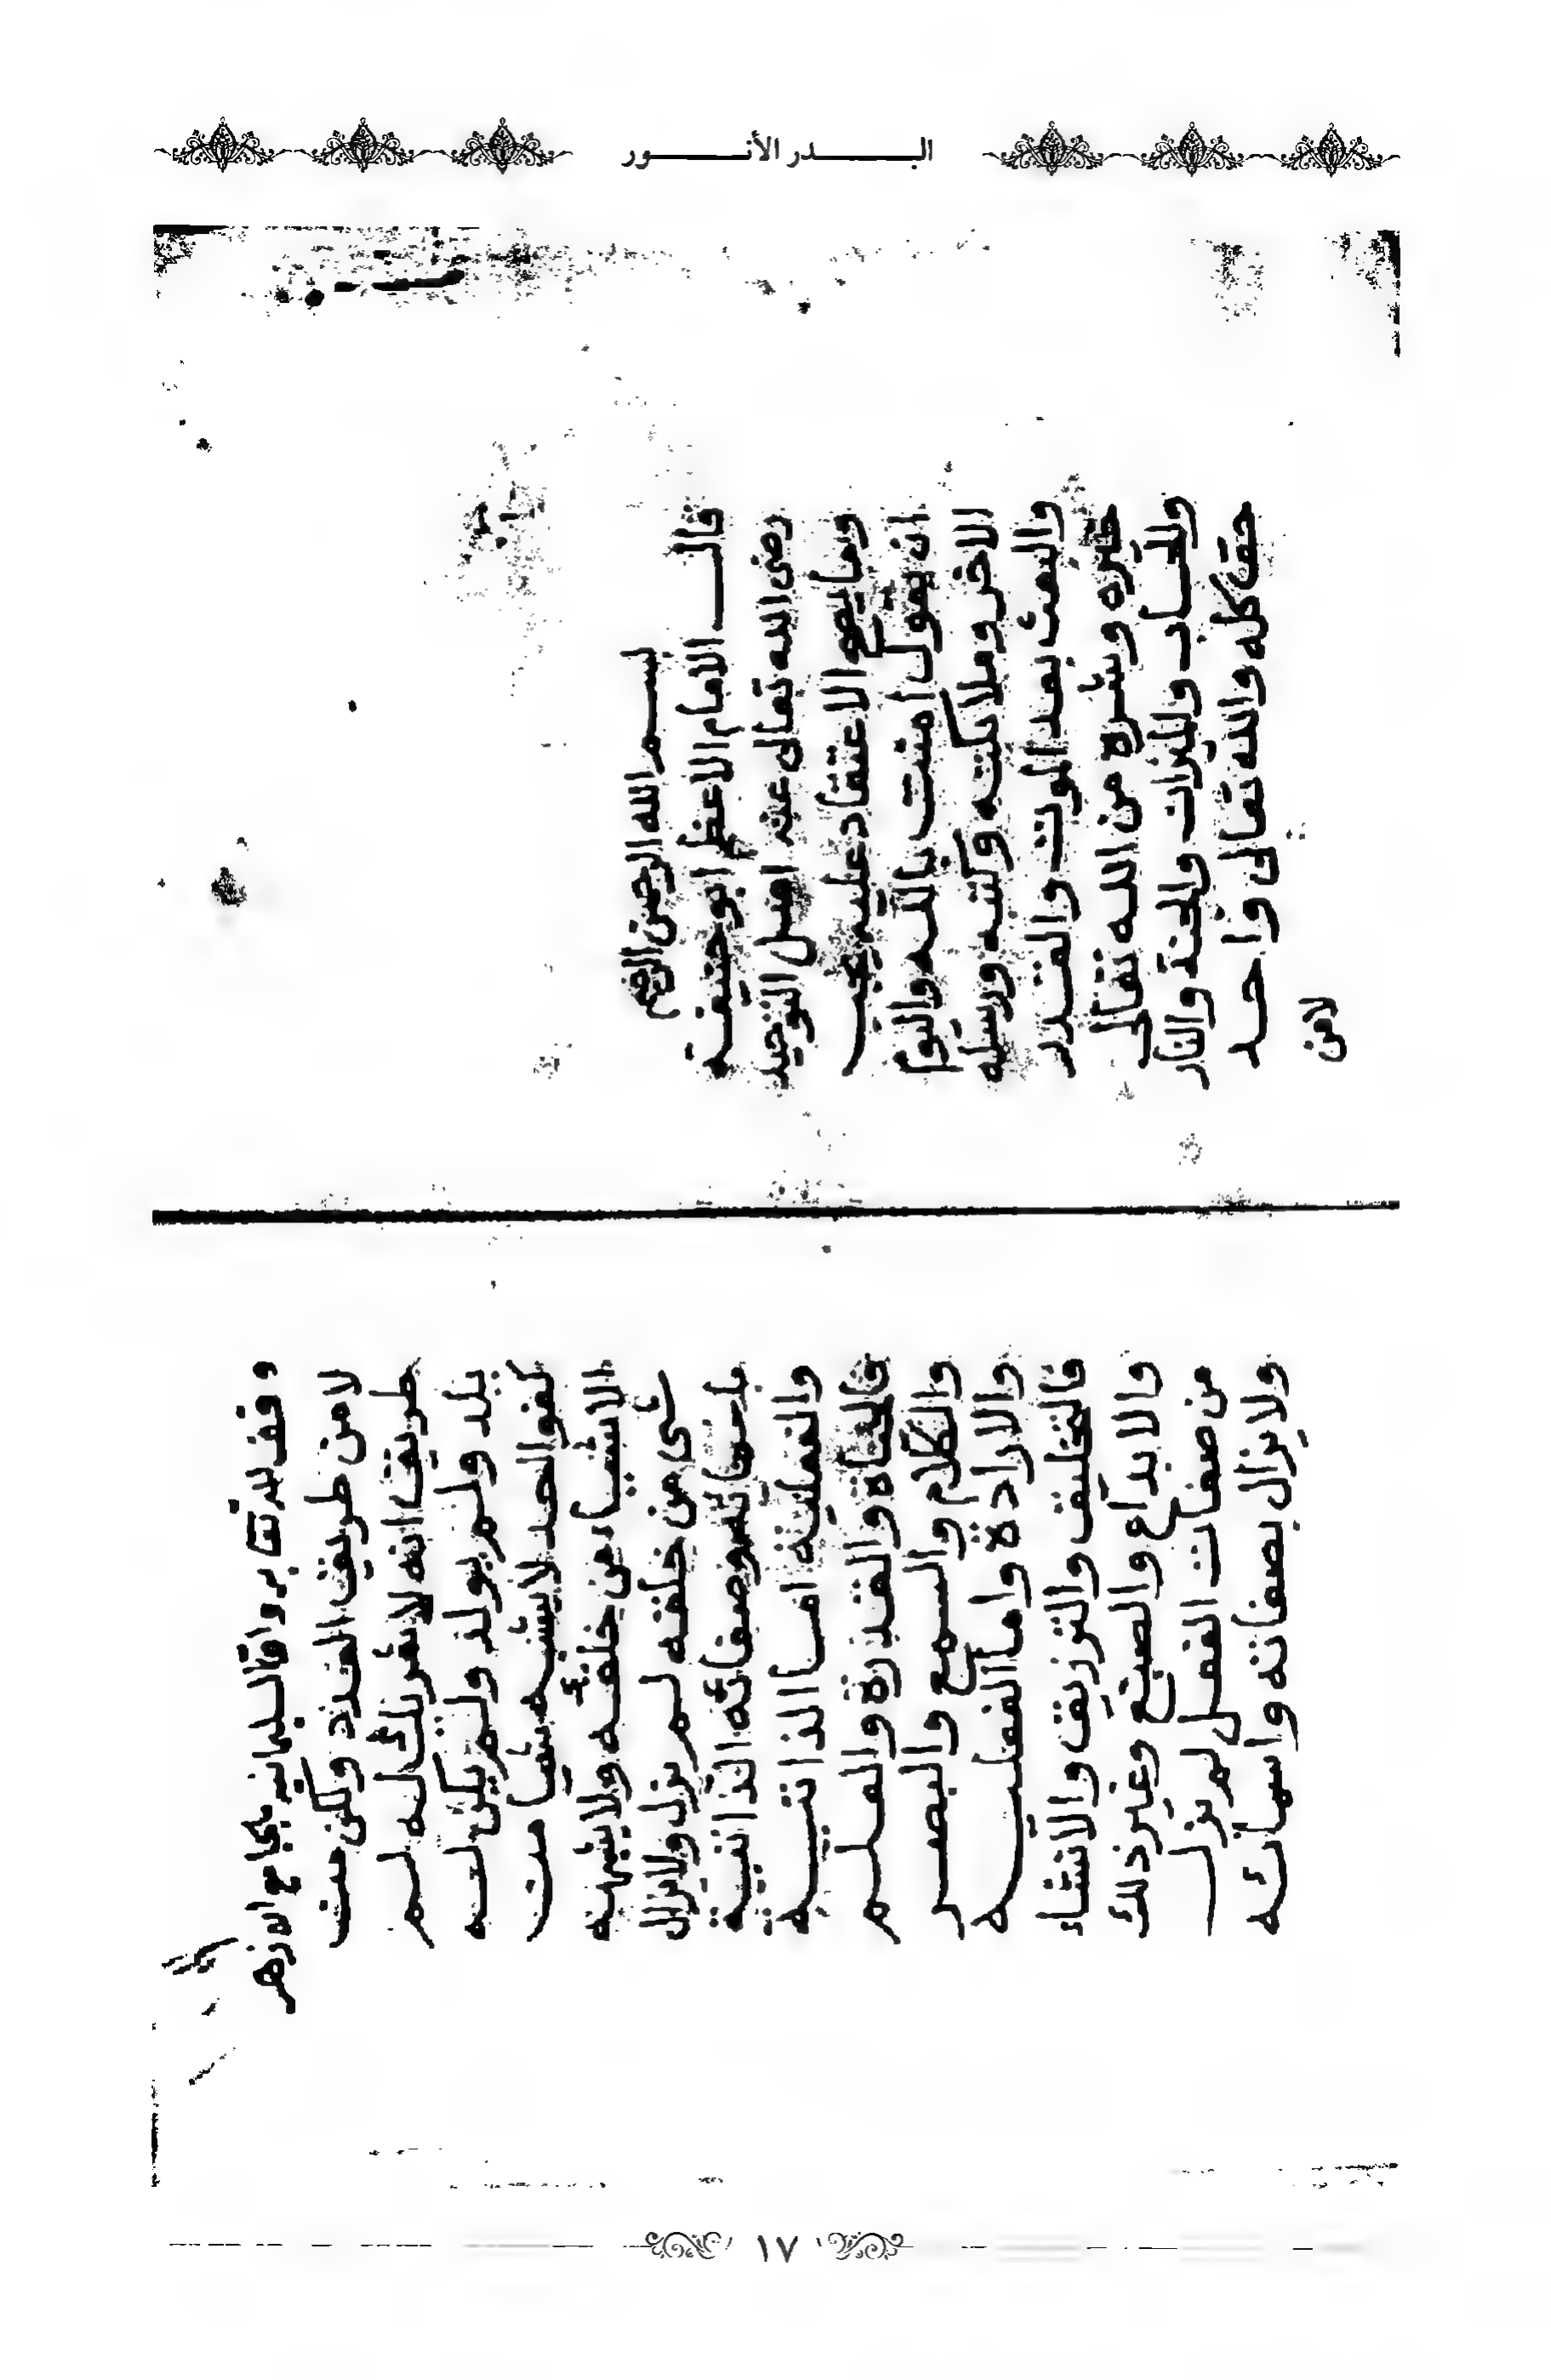 البدر الأنور
بسم الله الرحمن الرحيم
قال الامام الاعظم ابو حنيفة
رضى الله تعالى عنه اصل التوحيد
وما يصح الاعتقاد عليه يجب
ان يقول امنت بالله واليوم
الاخر وملائكته وكتبه ورسله
والبعث بعد الموت والقدر
خيره وشره من الله تعالى
والحساب والميزان والجنة والنار
حق كله والله تعالى واحد
لا من
وقف لله تعالى
لا من طريق العدد ولكن من
طريق انه لا شريك له لم
يلد ولم يولد ولم يكن له
كفوا احد لا يشبه شيئا من
الاشياء من خلقه ولا يشبهه
شئ من خلقه لم يزل ولا يزال
باسمائه وصفاته الذاتية
والفعلية اما الذاتيه
فالحياة والقدرة والعلم
والكلام والسمع والبصر
والارادة واما الفعليه
فالتخليق والترزيق والانشاء
والابداع والصنع وغير ذلك
من صفات الفعل لم يزل
ولا يزال بصفاته واسمائه
١٧